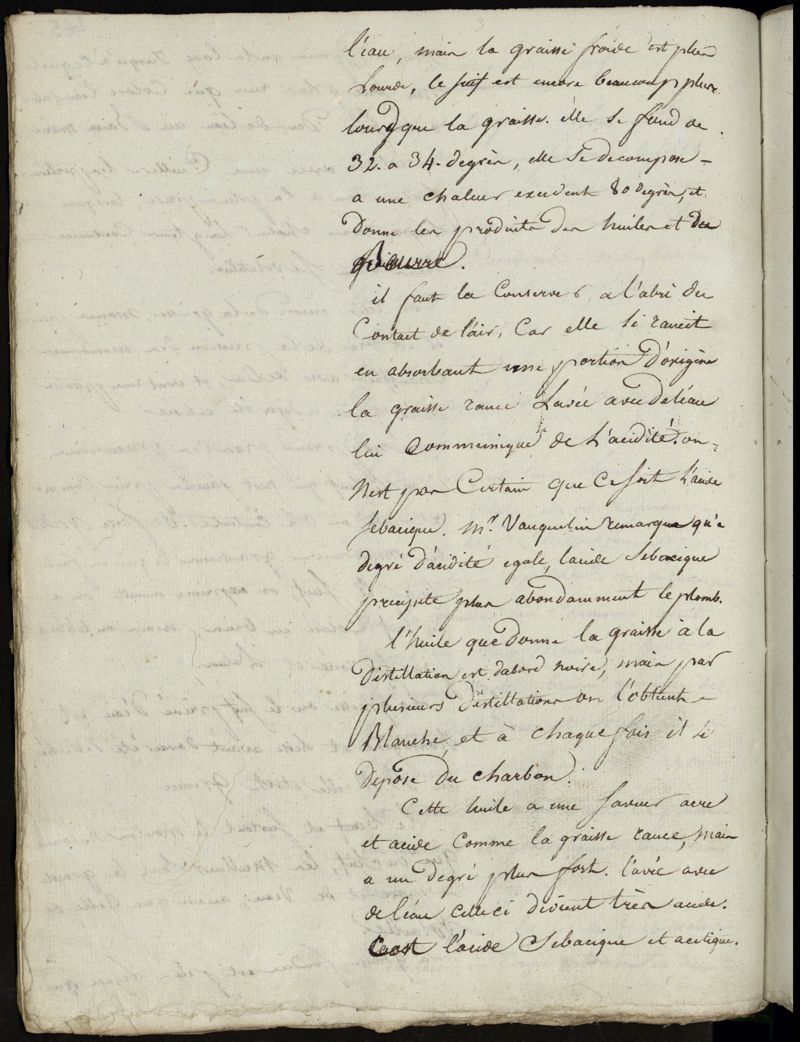 l'eau, mais la graisse froide est plus
Lourde, le suif est encore beaucoup plus
lourd que la graisse. elle se fond de
32. a 34. degrès, elle se decompose
a une chaleur excedent 80 degrès, et
Donne les produits des huiles et du
Beurre.
il faut la Conserver a l'abri du
Contact de l'air, Car elle se rancit
en absorbant une portion D'oxigène
la graisse rance Lavée avec De l'eau
lui Communique de L'acidité. on
N'est pas Certain que Ce soit L'acide
sebacique. Mr. Vauquelin remarque qu'a
degré d'acidité egale, l'acide Sebacique
precipite plus abondamment le plomb.
l'huile que donne la graisse à la
Distillation est d'abord noire, mais par
plusieurs Distillations on l'obtient
Blanche, et à chaque fois il se
Depose Du charbon.
Cette huile a une saveur acre
et acide Comme la graisse rance, mais
a un degré plus fort. l'avée avec
de l'eau celle ci devient très acide.
C'est l'acide Sebacique et acetique.